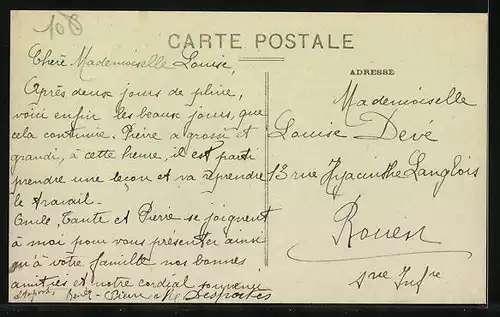 108
CARTE POSTALE
Chère Mademoiselle Louise,
Après deux jours de pluie,
voici enfin les beaux jours, que
cela continue. Pierre a grossi et
grandi, à cette heure, il est parti
prendre une leçon et va reprendre
le travail.
Oncle, Tante et Pierre se joignent
à moi pour vous présenter ainsi
qu'à votre famille nos bonnes
amitiés et notre cordial souvenir
Pierre Desportes
ADRESSE
Mademoiselle
Louise Devé
13 rue Hyacinthe Langlois
Rouen
Sne Infre